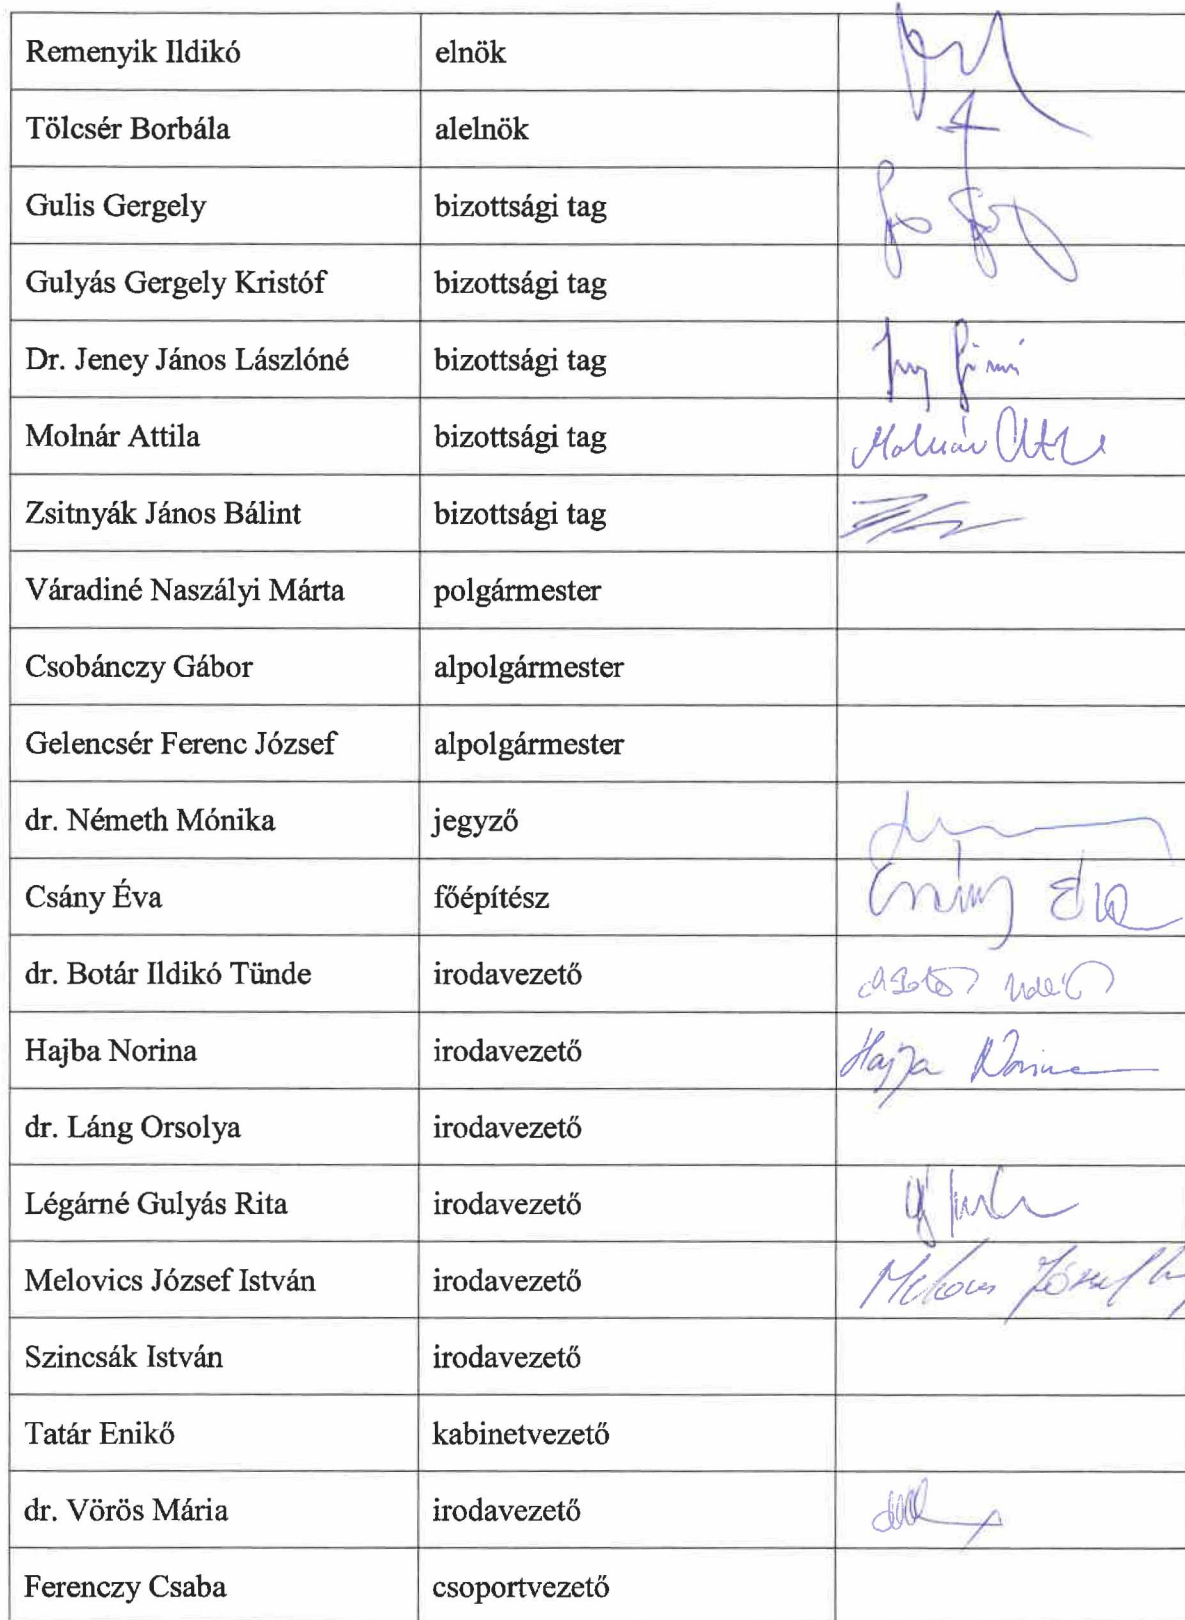 Remenyik Ildikó elnök
Tölcsér Borbála alelnök
Gulis Gergely bizottsági tag
Gulyás Gergely Kristóf bizottsági tag
Dr. Jeney János Lászlóné bizottsági tag
Molnár Attila bizottsági tag Molnár Attila
Zsitnyák János Bálint bizottsági tag
Váradiné Naszályi Márta polgármester
Csobánczy Gábor alpolgármester
Gelencsér Ferenc József alpolgármester
dr. Németh Mónika jegyző
Csány Éva főépítész Csány Éva
dr. Botár Ildikó Tünde irodavezető
Hajba Norina irodavezető Hajba Norina
dr. Láng Orsolya irodavezető
Légárné Gulyás Rita irodavezető
Melovics József István irodavezető
Szincsák István irodavezető
Tatár Enikő kabinetvezető
dr. Vörös Mária irodavezető
Ferenczy Csaba csoportvezető